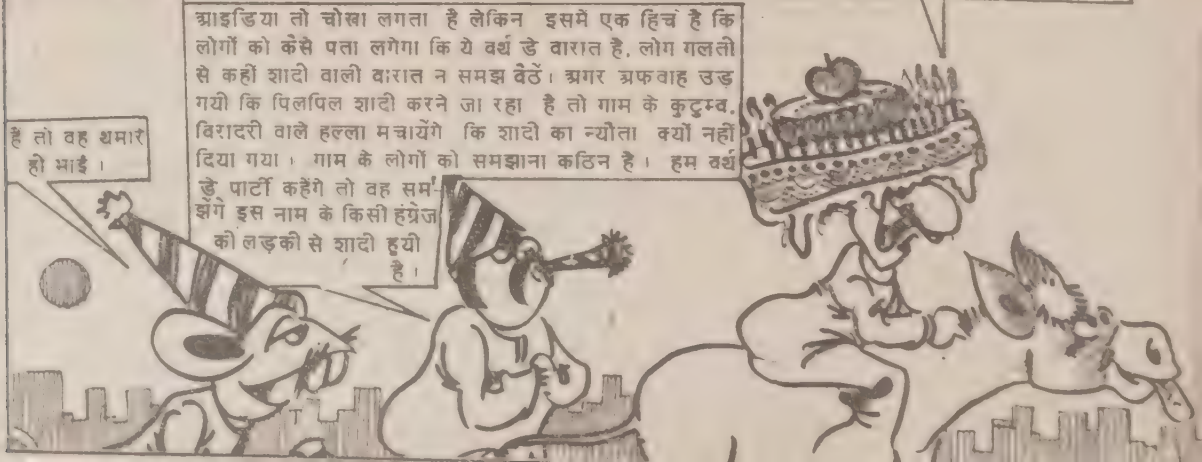 आइडिया तो चोखा लगता है लेकिन इसमें एक हिचं है कि
लोगों को कैसे पता लगेगा कि ये बर्थ डे बारात है, लोग गलती
से कहीं शादी वाली बारात न समझ बैठें। अगर अफवाह उड़
गयी कि पिलपिल शादी करने जा रहा है तो गाम के कुटुम्ब,
बिरादरी वाले हल्ला मचायेंगे कि शादी का न्यौता क्यों नहीं
दिया गया। गाम के लोगों को समझाना कठिन है। हम बर्थ
डे पार्टी कहेंगे तो वह सम-
झेंगे इस नाम के किसी हंग्रेज
की लड़की से शादी हुयी
है।
हैं तो वह थमारे
ही भाई।